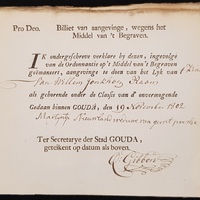 Pro Deo. Billiet van aangevinge, wegens het
Middel van 't Begraven.
IK ondergeschreve verklare by desen, ingevolge
van de Ordonnantie op 't Middel van 't Begraven
geëmaneert, aangevinge te doen van het Lyk van
Jan Willem
als gehorende onder de Classis van d' onvermogende
Gedaan binnen GOUDA, den 19 November 1802
Nieuwland
Ter Secretarye der Stad GOUDA,
geregistreert op datum als boven.